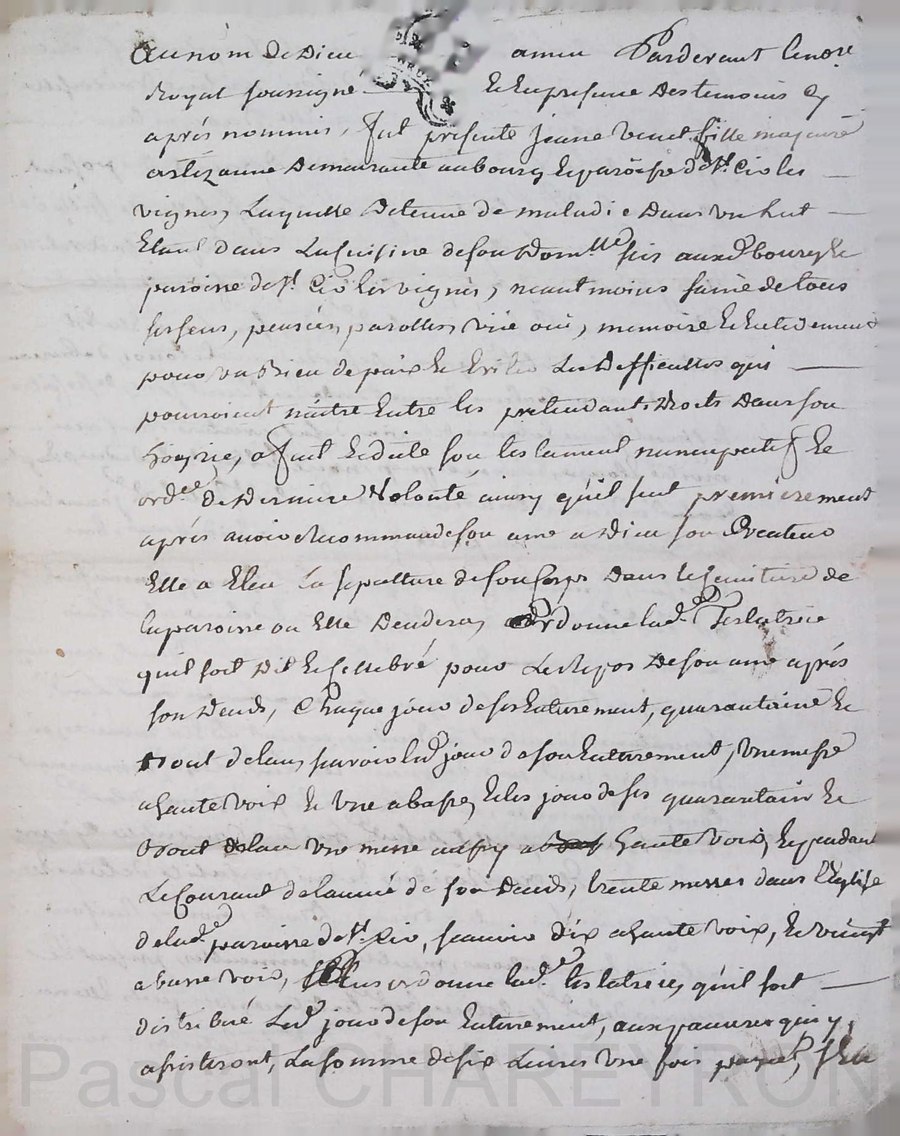 Au nom de Dieu amen Pardevant le no.re
Royal soussigné Et En presence Des temoins Cy
aprés nommés, fut presente jeane Vincent fille majeure
artizanne Demeurante au bourg Et paroisse de S.t Cir les
vignes, Laquelle Detenue de maladie Dans un Lit
Etant dans La Cuisine de son Dom.lle sis aud. bourg Et
paroisse de S.t Cir les vignes, neantmoins saine de tous
ses sens, pensées, parolles, vüe oüi, memoire Et Entendement
pour vu Dieu de paix Et Eviter Les Difficultes qui
pourroient naitre Entre les pretendants Droits Dans son
hoyrie, a fait Et dicté son testament nuncupatif Et
ord.ce De Derniere Volonté ainsy qu'il suit premierement
aprés avoir Recommandé son ame a Dieu son Createur
Elle a Eleu La sepulture de son Corps Dans le Cimitiere de
la paroisse ou Elle Decedera, Ordonne lad.e Testatrice
qu'il soit Dit Et Cellebré pour Le Repos De son ame aprés
son Decés, Chaque jour de ses Enterrement, quarantaine Et
bout de l'an, savoir led. jour de son Enterrement, Une messe
a haute voix Et Une a basse, Et les jour de ses quarantain Et
bout de lan Une messe aussy a haute voix, Et pendant
Le Courant de l'année de son Decés, trente messes dans l'Eglise
de lad.e paroisse de S.t Cir, scavoir dix a haute voix, Et vingt
a basse voix, Plus ordonne lad.e testatrice, qu'il soit
distribué Led. jour de son Enterrement, aux pauvres qui y
assisteront, La somme de six Livres Une fois payée,
Pascal CHAREYRON